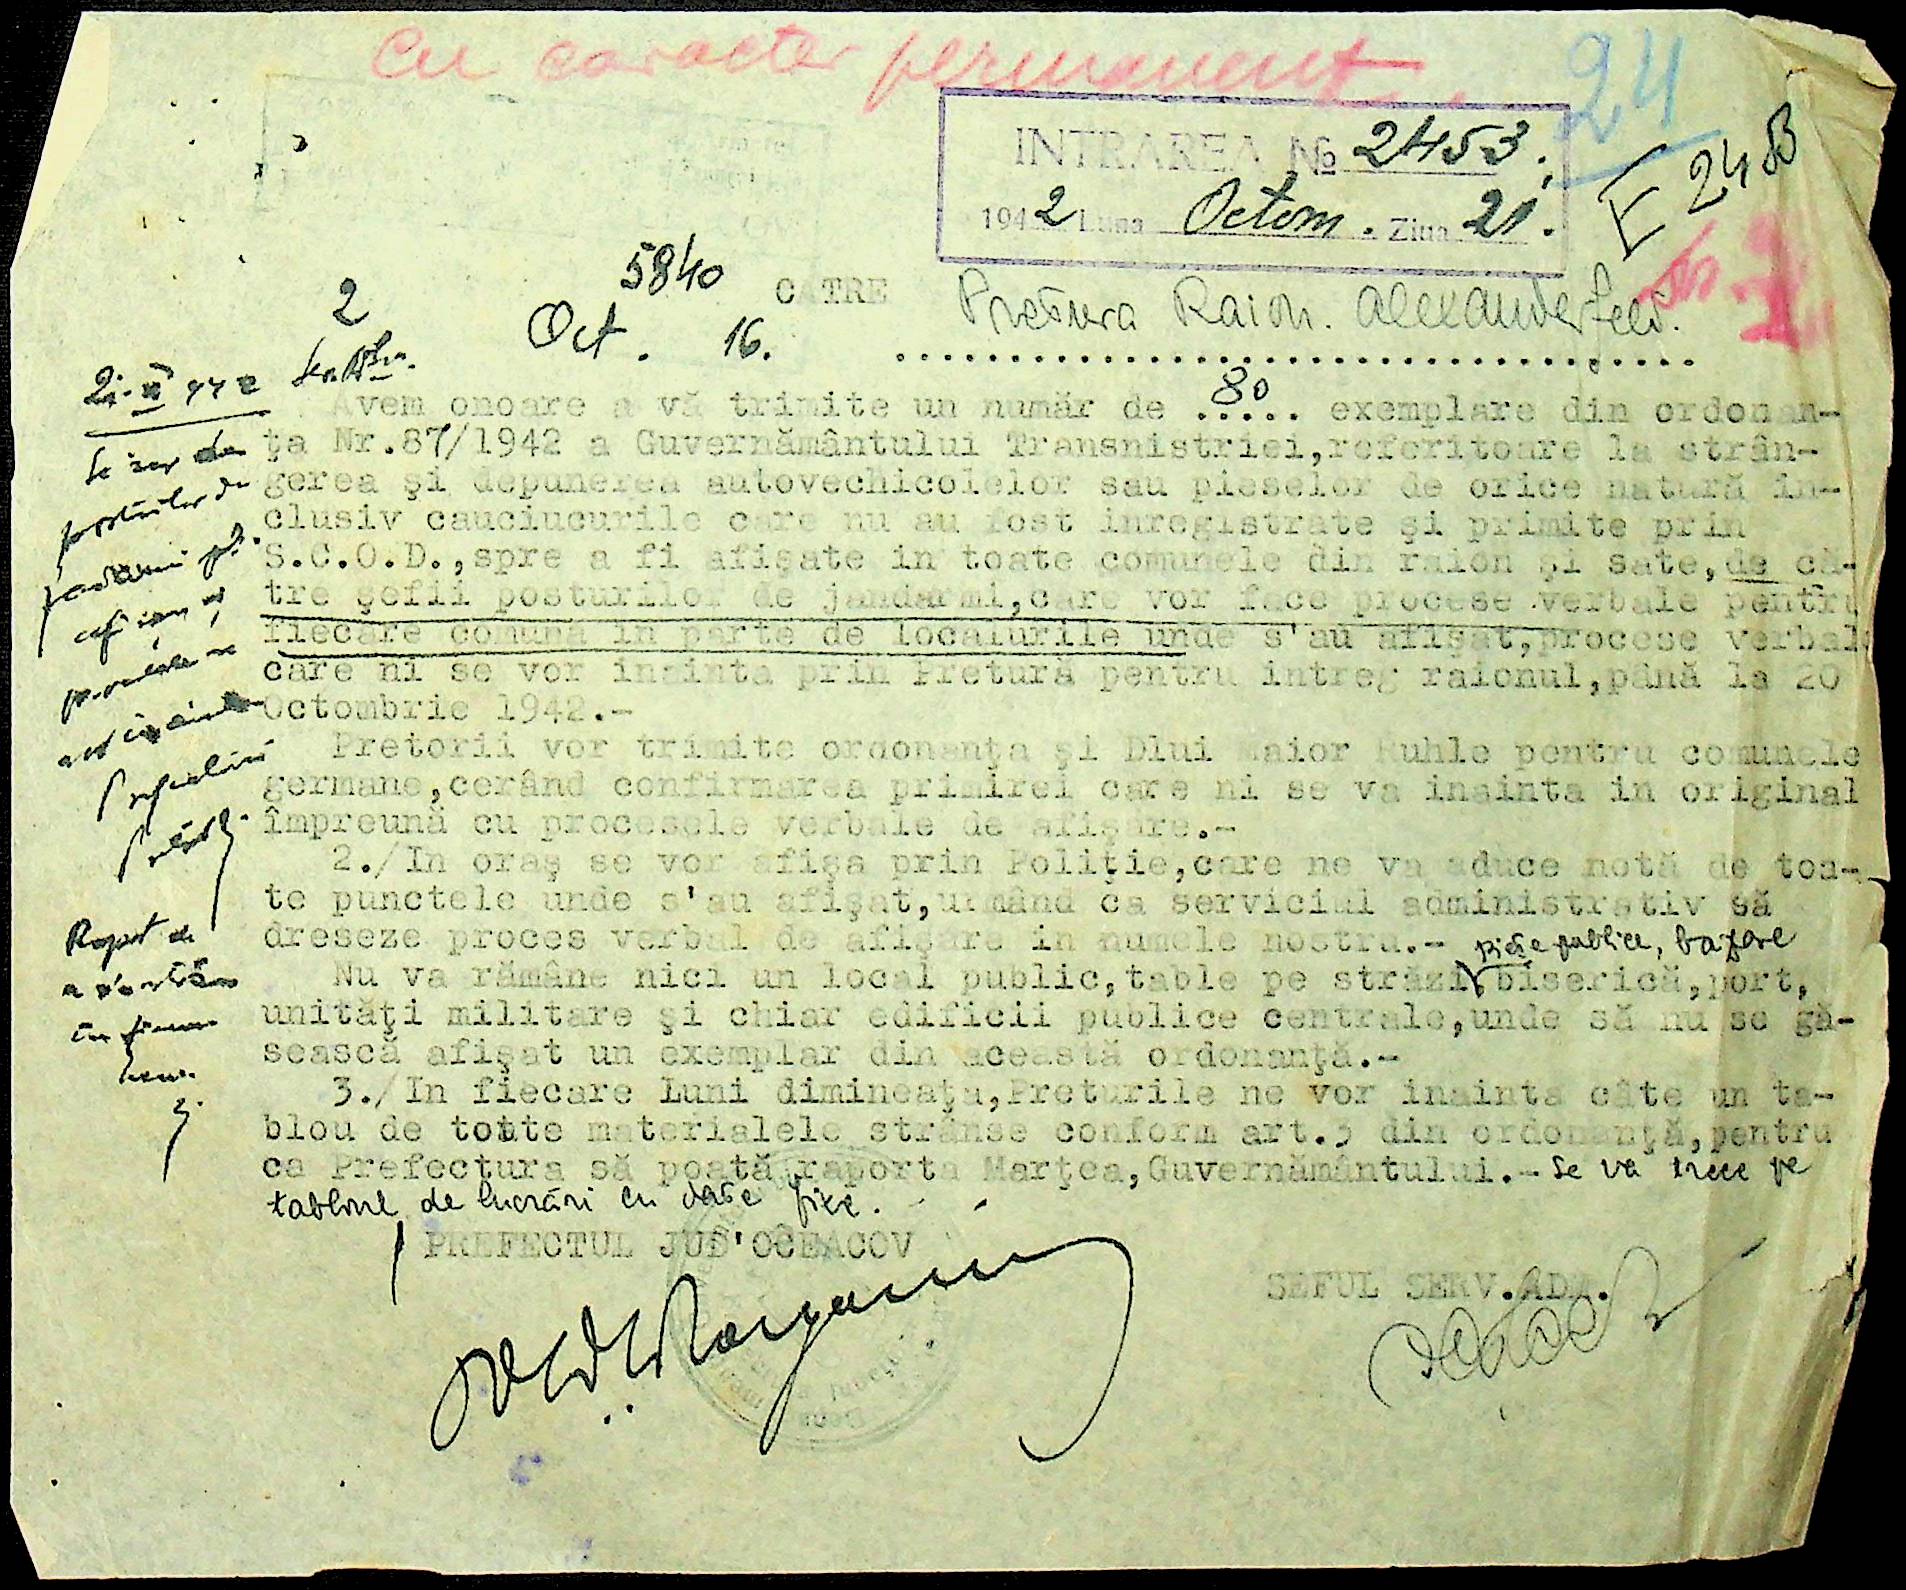 Cu caracter permanent.
24
INTRAREA № 2453.
1942 Luna Octom. Ziua 21.
E 2453
5840
CATRE Pretura Raion. Alexanderfeld.
2
Oct. 16.
Avem onoare a vă trimite un număr de 80 exemplare din ordonan-
ţa Nr.87/1942 a Guvernământului Transnistriei,referitoare la strân-
gerea şi depunerea autovechicolelor sau pieselor de orice natură in-
clusiv cauciucurile care nu au fost inregistrate şi primite prin
S.C.O.D.,spre a fi afişate in toate comunele din raion şi sate,de că-
tre şefii posturilor de jandarmi,care vor face procese verbale pentru
fiecare comună in parte de localurile unde s'au afişat,procese verbale
care ni se vor inainta prin Pretură pentru intreg raionul,până la 20
Octombrie 1942.-
Pretorii vor trimite ordonanţa şi Dlui Maior Ruhle pentru comunele
germane,cerând confirmarea primirei care ni se va inainta in original
împreună cu procesele verbale de afişare.-
2./In oraş se vor afişa prin Poliţie,care ne va aduce notă de toa-
te punctele unde s'au afişat,urmând ca serviciul administrativ să
dreseze proces verbal de afişare in numele nostru.-
pieţe publice, bazare
Nu va rămâne nici un local public,table pe străzi,biserică,port,
unităţi militare şi chiar edificii publice centrale,unde să nu se gă-
sească afişat un exemplar din această ordonanţă.-
3./In fiecare Luni dimineaţa,Preturile ne vor inainta câte un ta-
blou de toate materialele strânse conform art.5 din ordonanţă,pentru
ca Prefectura să poată raporta Marţea,Guvernământului.- Se va trece pe
tabloul de lucrări cu date fixe.
PREFECTUL JUD'OCEACOV
SEFUL SERV.ADM.